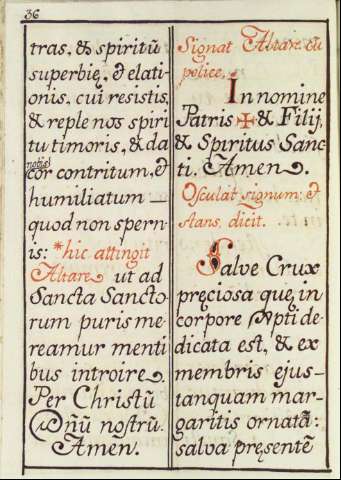 36
tras, & spiritū
superbię, & elati-
onis, cui resistis,
& reple nos spiri
tu timoris, & da
nobis
cor contritum, &
humiliatum —
quod non spern-
is: *hic attingit
Altare ut ad
Sancta Sancto
rum puris me-
reamur menti
bus introire.
Per Christū
Dn̄ū nostrū.
Amen.
Signat Altare cū
police.
In nomine
Patris ✠ & Filij,
& Spiritus Sanc-
ti. Amen.
Osculat signum: &
stans, dicit.
Salve Crux
pręciosa quę in
corpore Xpti de-
dicata est, & ex
membris ejus-
tanquam mar-
garitis ornatā:
salva pręsentē